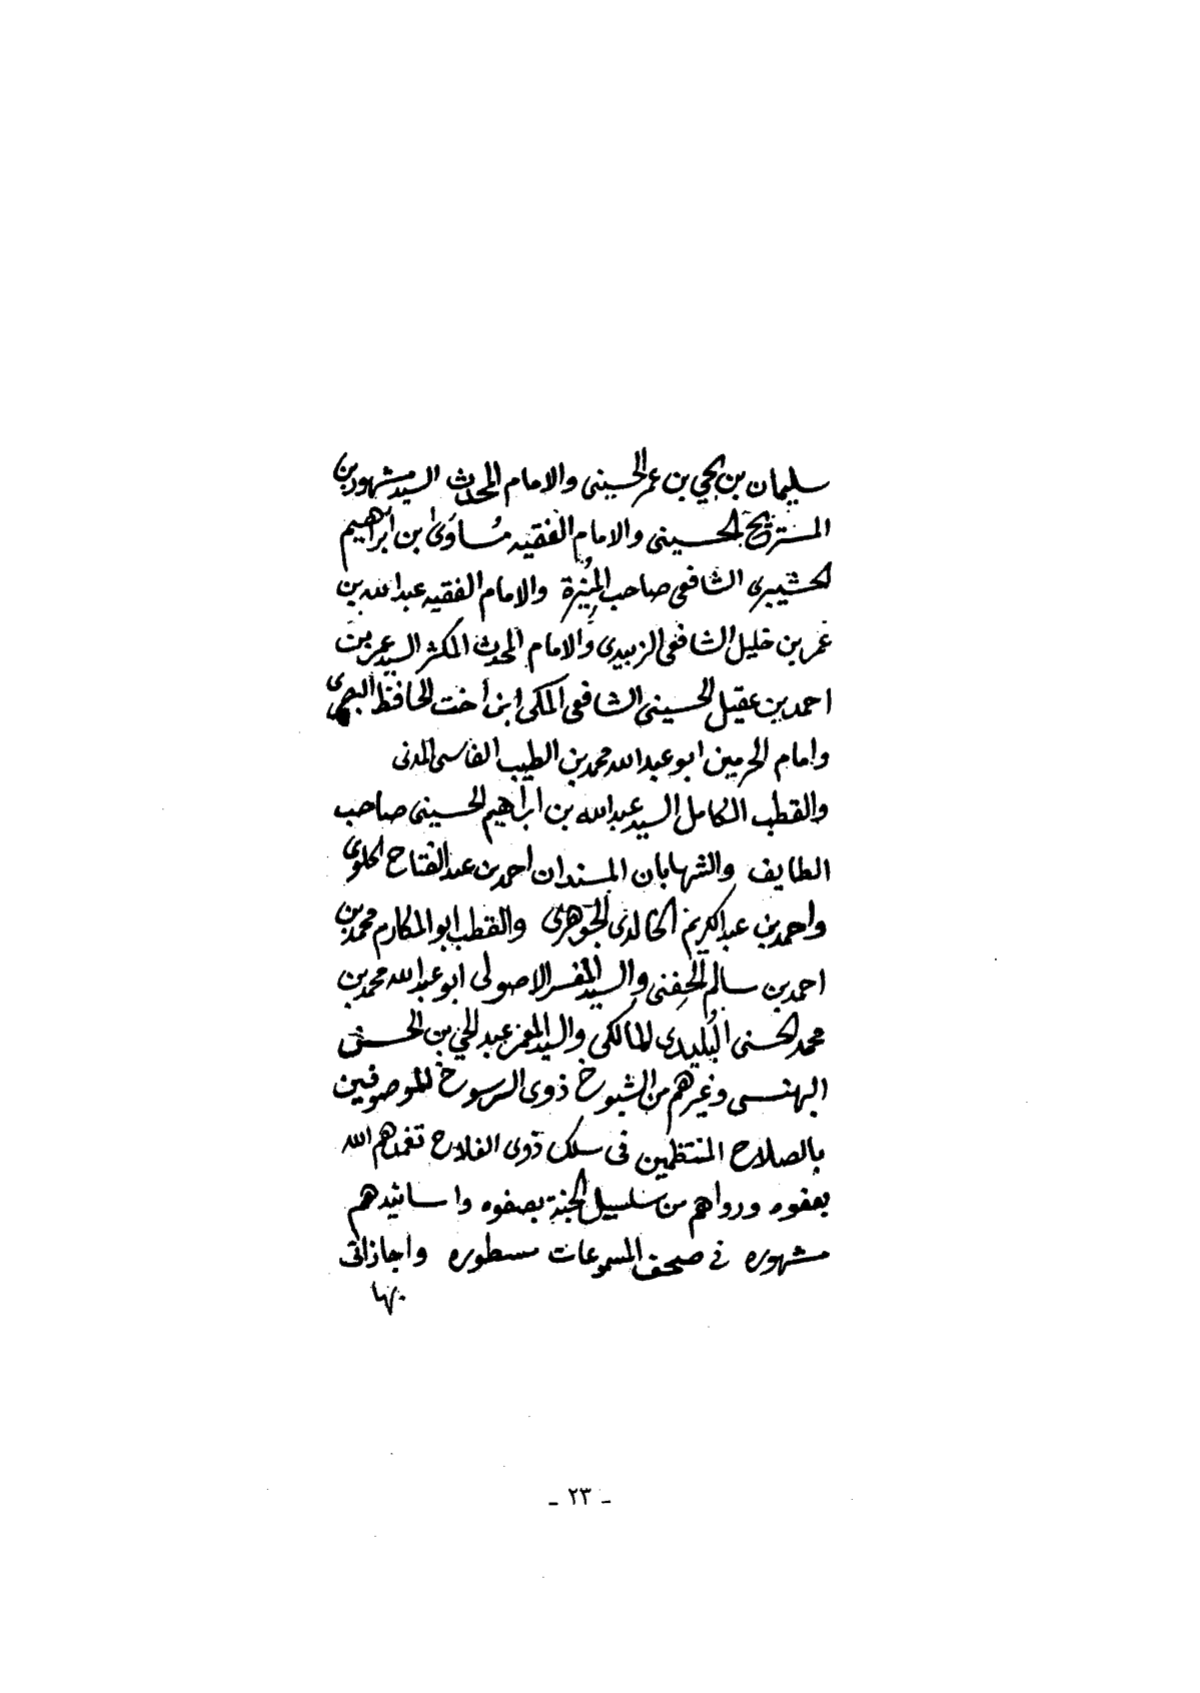 سليمان بن يحيي بن عمر الحسيني والامام المحدث السيد مشهور بن
المستريح الحسيني والامام الفقيه مُساوَىٰ بن ابراهيم
الحشيبري الشافعي صاحب المُنِيرة والامام الفقيه عبد الله بن
عمر بن خليل الشافعي الزبيدي والامام المحدث المكثر السيد عمر بن
احمد بن عقيل الحسيني الشافعي المكي ابن أخت الحافظ البصري
وامام الحرمين ابو عبد الله محمد بن الطيب الفاسي المدني
والقطب الكامل السيد عبد الله بن ابراهيم الحسيني صاحب
الطايف والشهابان المسندان احمد بن عبد الفتاح الملوي
واحمد بن عبد الكريم الخالدي الجَوْهري والقطب ابو المكارم محمد بن
احمد بن سالم الحِفني والسيد المفسر الاصولي ابو عبد الله محمد بن
محمد الحسني البُليدي المالكي والسيد المعمر عبد الحي بن الحسن
البهنسي وغيرهم من الشيوخ ذوي الرسوخ الموصوفين
بالصلاح المنتظمين في سلك ذوي الفلاح تغمدهم الله
بعفوه ورواهم من سلسبيل الجنة بصفوه واسانيدهم
مشهوره في صحف المسموعات مسطوره واجازاتي
بها
ـ ٢٣ ـ